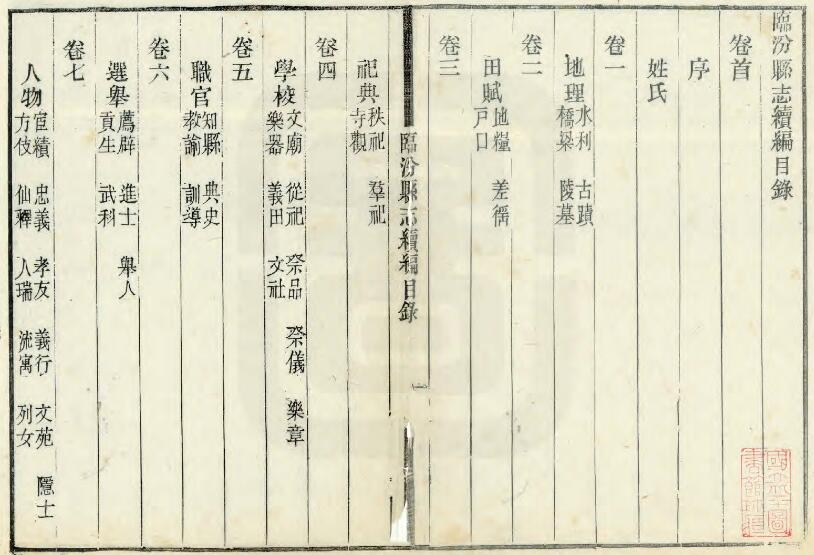 臨汾縣志續編目錄
卷首
序
姓氏
卷一
地理 水利 古蹟
橋梁 陵墓
卷二
田賦 地糧 差徭
戶口
卷三
祀典 秩祀 羣祀
寺觀
臨汾縣志續編目錄 一
卷四
學校 文廟 從祀 祭品 祭儀 樂章
樂器 義田 文社
卷五
職官 知縣 典史
教諭 訓導
卷六
選舉 薦辟 進士 舉人
貢生 武科
卷七
人物 宦績 忠義 孝友 義行 文苑 隱士
方伎 仙釋 人瑞 流寓 列女